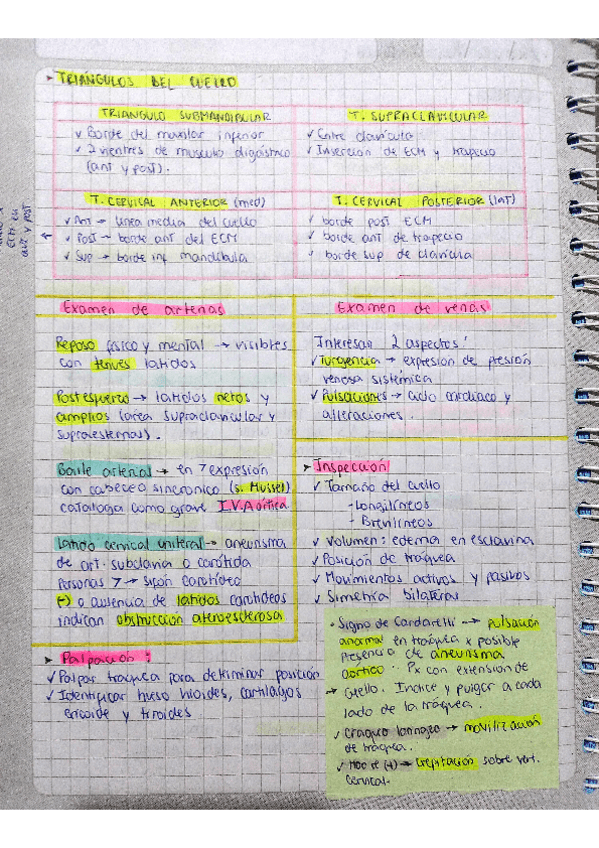 ➤ TRIÁNGULOS DEL CUELLO
TRIANGULO SUBMANDIBULAR
✓ Borde del maxilar inferior
✓ 2 vientres de musculo digástrico
(ant y post).
T. SUPRACLAVICULAR
✓ Entre clavícula
✓ Inserción de ECM y trapecio
T. CERVICAL ANTERIOR (med)
✓ Ant → linea media del cuello
✓ Post → borde ant del ECM
✓ Sup → borde inf mandíbula
T. CERVICAL POSTERIOR (lat)
✓ borde post ECM
✓ borde ant de trapecio
✓ borde sup de clavícula
ECM en
ant y post
Examen de arterias
Reposo físico y mental → visibles
con tenues latidos
Postesfuerzo → latidos netos y
amplios (area supraclavicular y
supraesternas).
Baile arterial → en > expresión
con cabeceo sincronico (s. Musset)
cataloga como grave I.V.Aórtica
Latido cervical uniteral → aneurisma
de art. subclavia o carótida
Personas > → sifón carotídeo
(-) o ausencia de latidos carotídeos
indican obstrucción ateroesclerosa
Examen de venas
Interesan 2 aspectos:
✓ Turgencia → expresion de presión
venosa sistémica
✓ Pulsaciones → ciclo cardiaco y
alteraciones.
➤ Inspección
✓ Tamaño del cuello
- Longilíneos
- Brevilíneos
✓ Volumen: edema en esclavina
✓ Posición de tráquea
✓ Movimientos activos y pasivos
✓ Simetría bilateral
➤ Palpación:
✓ Palpar traquea para determinar posición
✓ Identificar hueso hioides, cartílagos
cricoide y tiroides
• Signo de Cardarelli → pulsación
anormal en tráquea x posible
presencia de aneurisma
aórtico. Px con extensión de
cuello. Indice y pulgar a cada
lado de la tráquea.
✓ Craqueo laríngeo → movilización
de tráquea.
✓ Moore (+) → crepitación sobre vert.
cervical.